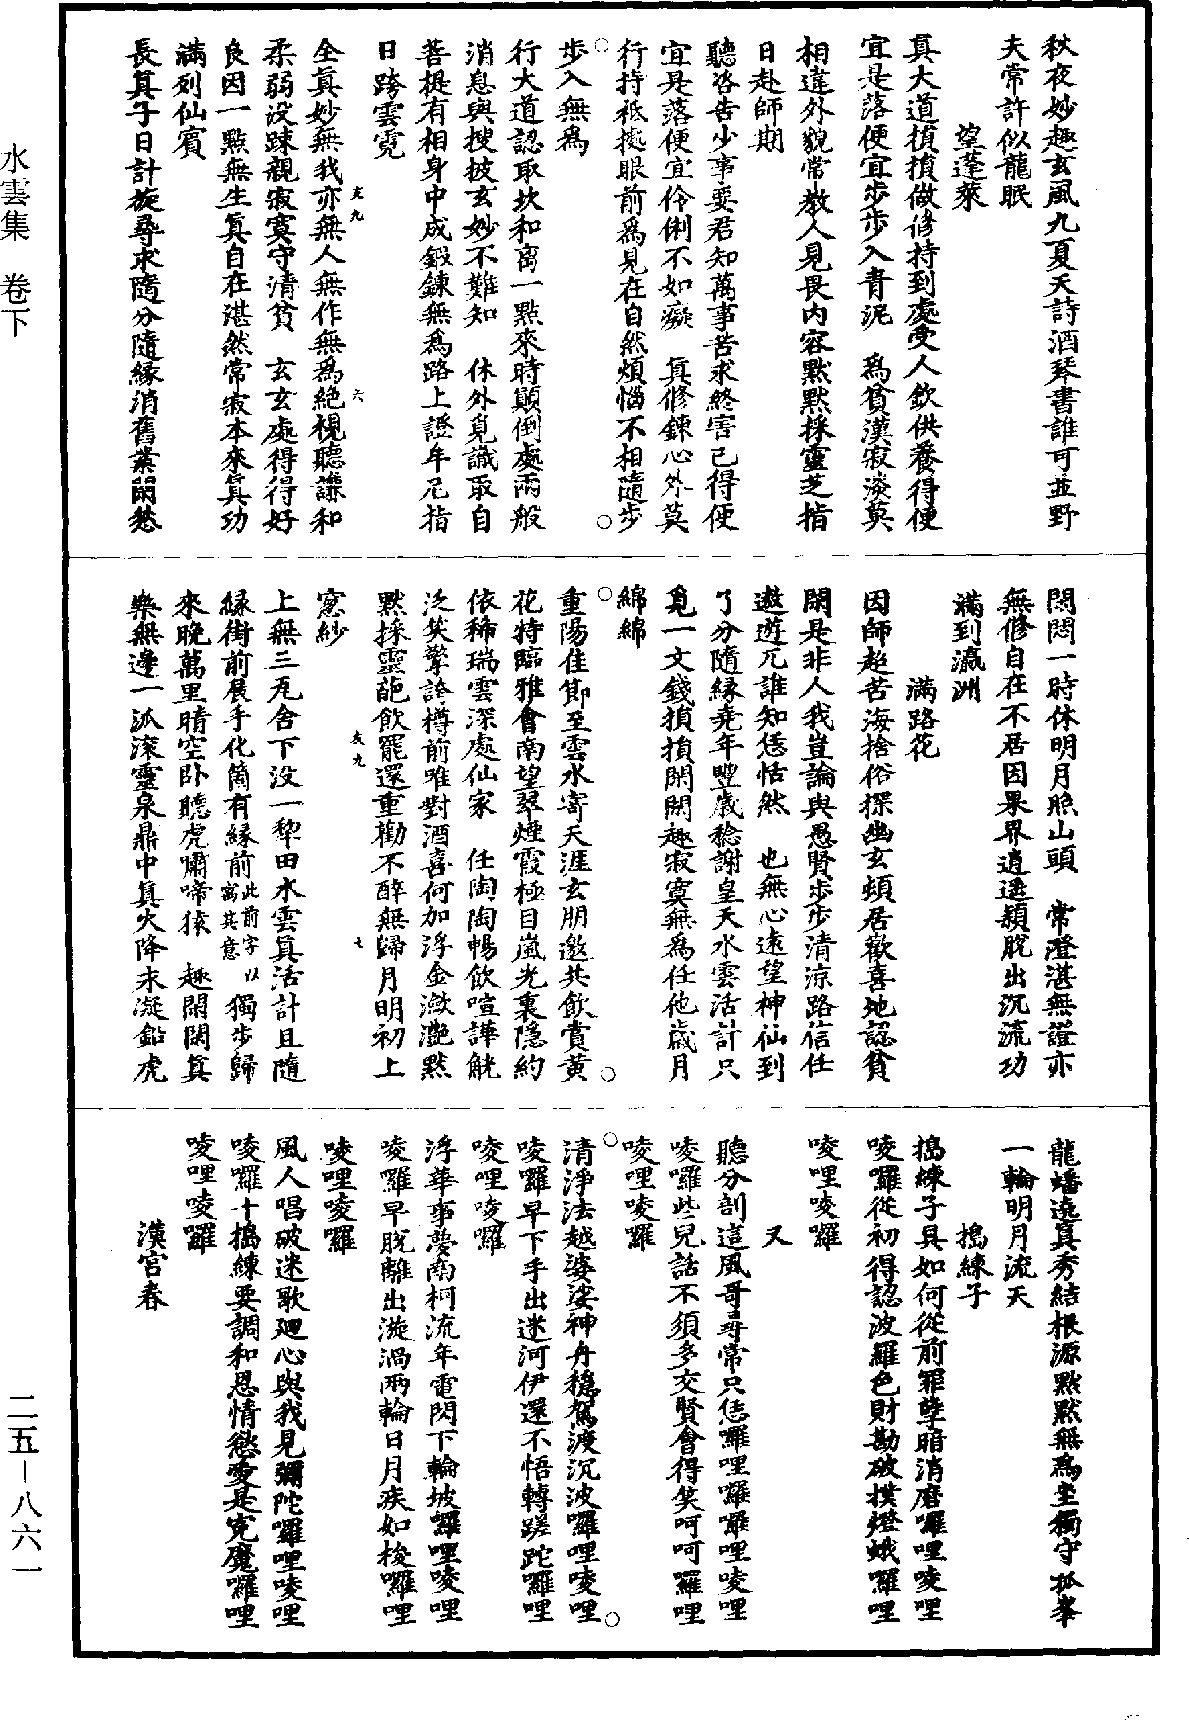 水雲集　卷下
秋夜妙趣玄風九夏天詩酒琴書誰可並野
夫常許似龍眠
望蓬萊
真大道損損做修持到處受人欽供養得便
宜是落便宜步步入青泥　為貧漢寂淡莫
相違外貌常教人見畏內容默默採靈芝指
日赴師期
聽咨告少事要君知萬事苦求終害己得便
宜是落便宜伶俐不如癡　真修鍊心外莫
行持祗據眼前為見在自然煩惱不相隨步
步入無為
行大道認取坎和离一點來時顛倒處兩般
消息與搜披玄妙不難知　休外覓識取自
菩提有相身中成鍛鍊無為路上證牟尼指
日跨雲霓
全真妙無我亦無人無作無為絕視聽謙和
柔弱沒踈親寂寞守清貧　玄玄處得得好
良因一點無生真自在湛然常寂本來真功
滿列仙賓
長真子日計旋尋求隨分隨緣消舊業閑愁
友九　六
悶悶一時休明月照山頭　常澄湛無證亦
無修自在不居因果界逍遙穎脫出沉流功
滿到瀛洲
滿路花
因師趂苦海捨俗探幽玄頻居歡喜地認貧
閑是非人我豈論與愚賢步步清涼路信任
遨遊兀誰知恁恬然　也無心遠望神仙到
了分隨緣堯年豐歲稔謝皇天水雲活計只
覓一文錢損損閑閑趣寂寞無為任他歲月
綿綿
重陽佳節至雲水寄天涯玄朋邀共飲賞黃
花特臨雅會南望翠煙霞極目嵐光裏隱約
依稀瑞雲深處仙家　任陶陶暢飲喧譁觥
泛笑擎誇樽前唯對酒喜何加浮金瀲灩默
默採靈葩飲罷還重勸不醉無歸月明初上
窓紗
友九　七
上無三瓦舍下没一犂田水雲真活計且隨
緣街前展手化箇有緣前此前字以寓其意獨步歸
來晚萬里晴空卧聽虎嘯啼猿　趣閑閑真
樂無邊一派滾靈泉鼎中真火降未凝鉛虎
龍蟠遶真秀結根源默默無為坐獨守孤峯
一輪明月流天
搗練子
搗練子具如何從前罪孽暗消磨囉哩唛哩
唛囉從初得認波羅色財勘破撲燈蛾囉哩
唛哩唛囉
又
聽分剖這風哥尋常只恁囉哩囉囉哩唛哩
唛囉些兒話不須多交賢會得笑呵呵囉哩
唛哩唛囉
清淨法越婆娑神舟穩駕渡沉波囉哩唛哩
唛囉早下手出迷河伊還不悟轉蹉跎囉哩
唛哩唛囉
浮華事夢南柯流年電閃下輪坡囉哩唛哩
唛囉早脫離出漩渦兩輪日月疾如梭囉哩
唛哩唛囉
風人唱破迷歌廻心與我見彌陀囉哩唛哩
唛囉十搗練要調和恩情慾愛是冤魔囉哩
唛哩唛囉
漢宮春
二五－八六一